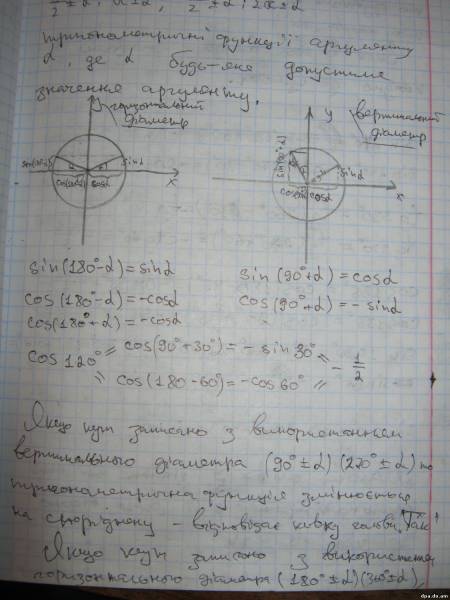 π/2 ± α, π ± α, 3π/2 ± α, 2π ± α
тригонометричні функції аргументу
α, де α будь-яке допустиме
значення аргументу.
горизонтальний
діаметр
y
вертикальний
діаметр
sin(180°-α)
sinα
cos(180°-α)
cosα
x
sin(90°+α)
sinα
cosα
x
sin(180°-α)=sinα
sin(90°+α)=cosα
cos(180°-α)=-cosα
cos(90°+α)=-sinα
cos(180°+α)=-cosα
cos120° = cos(90°+30°)=-sin30° = -1/2
= cos(180-60°)=-cos60° =
Якщо кут записано з використанням
вертикального діаметра (90°±α)(270°±α) то
тригонометрична функція змінюється
на споріднену - відповідає кивку голови "Так"
Якщо кут записано з використанням
горизонтального діаметра (180°±α)(360°±α),
dpa.do.am